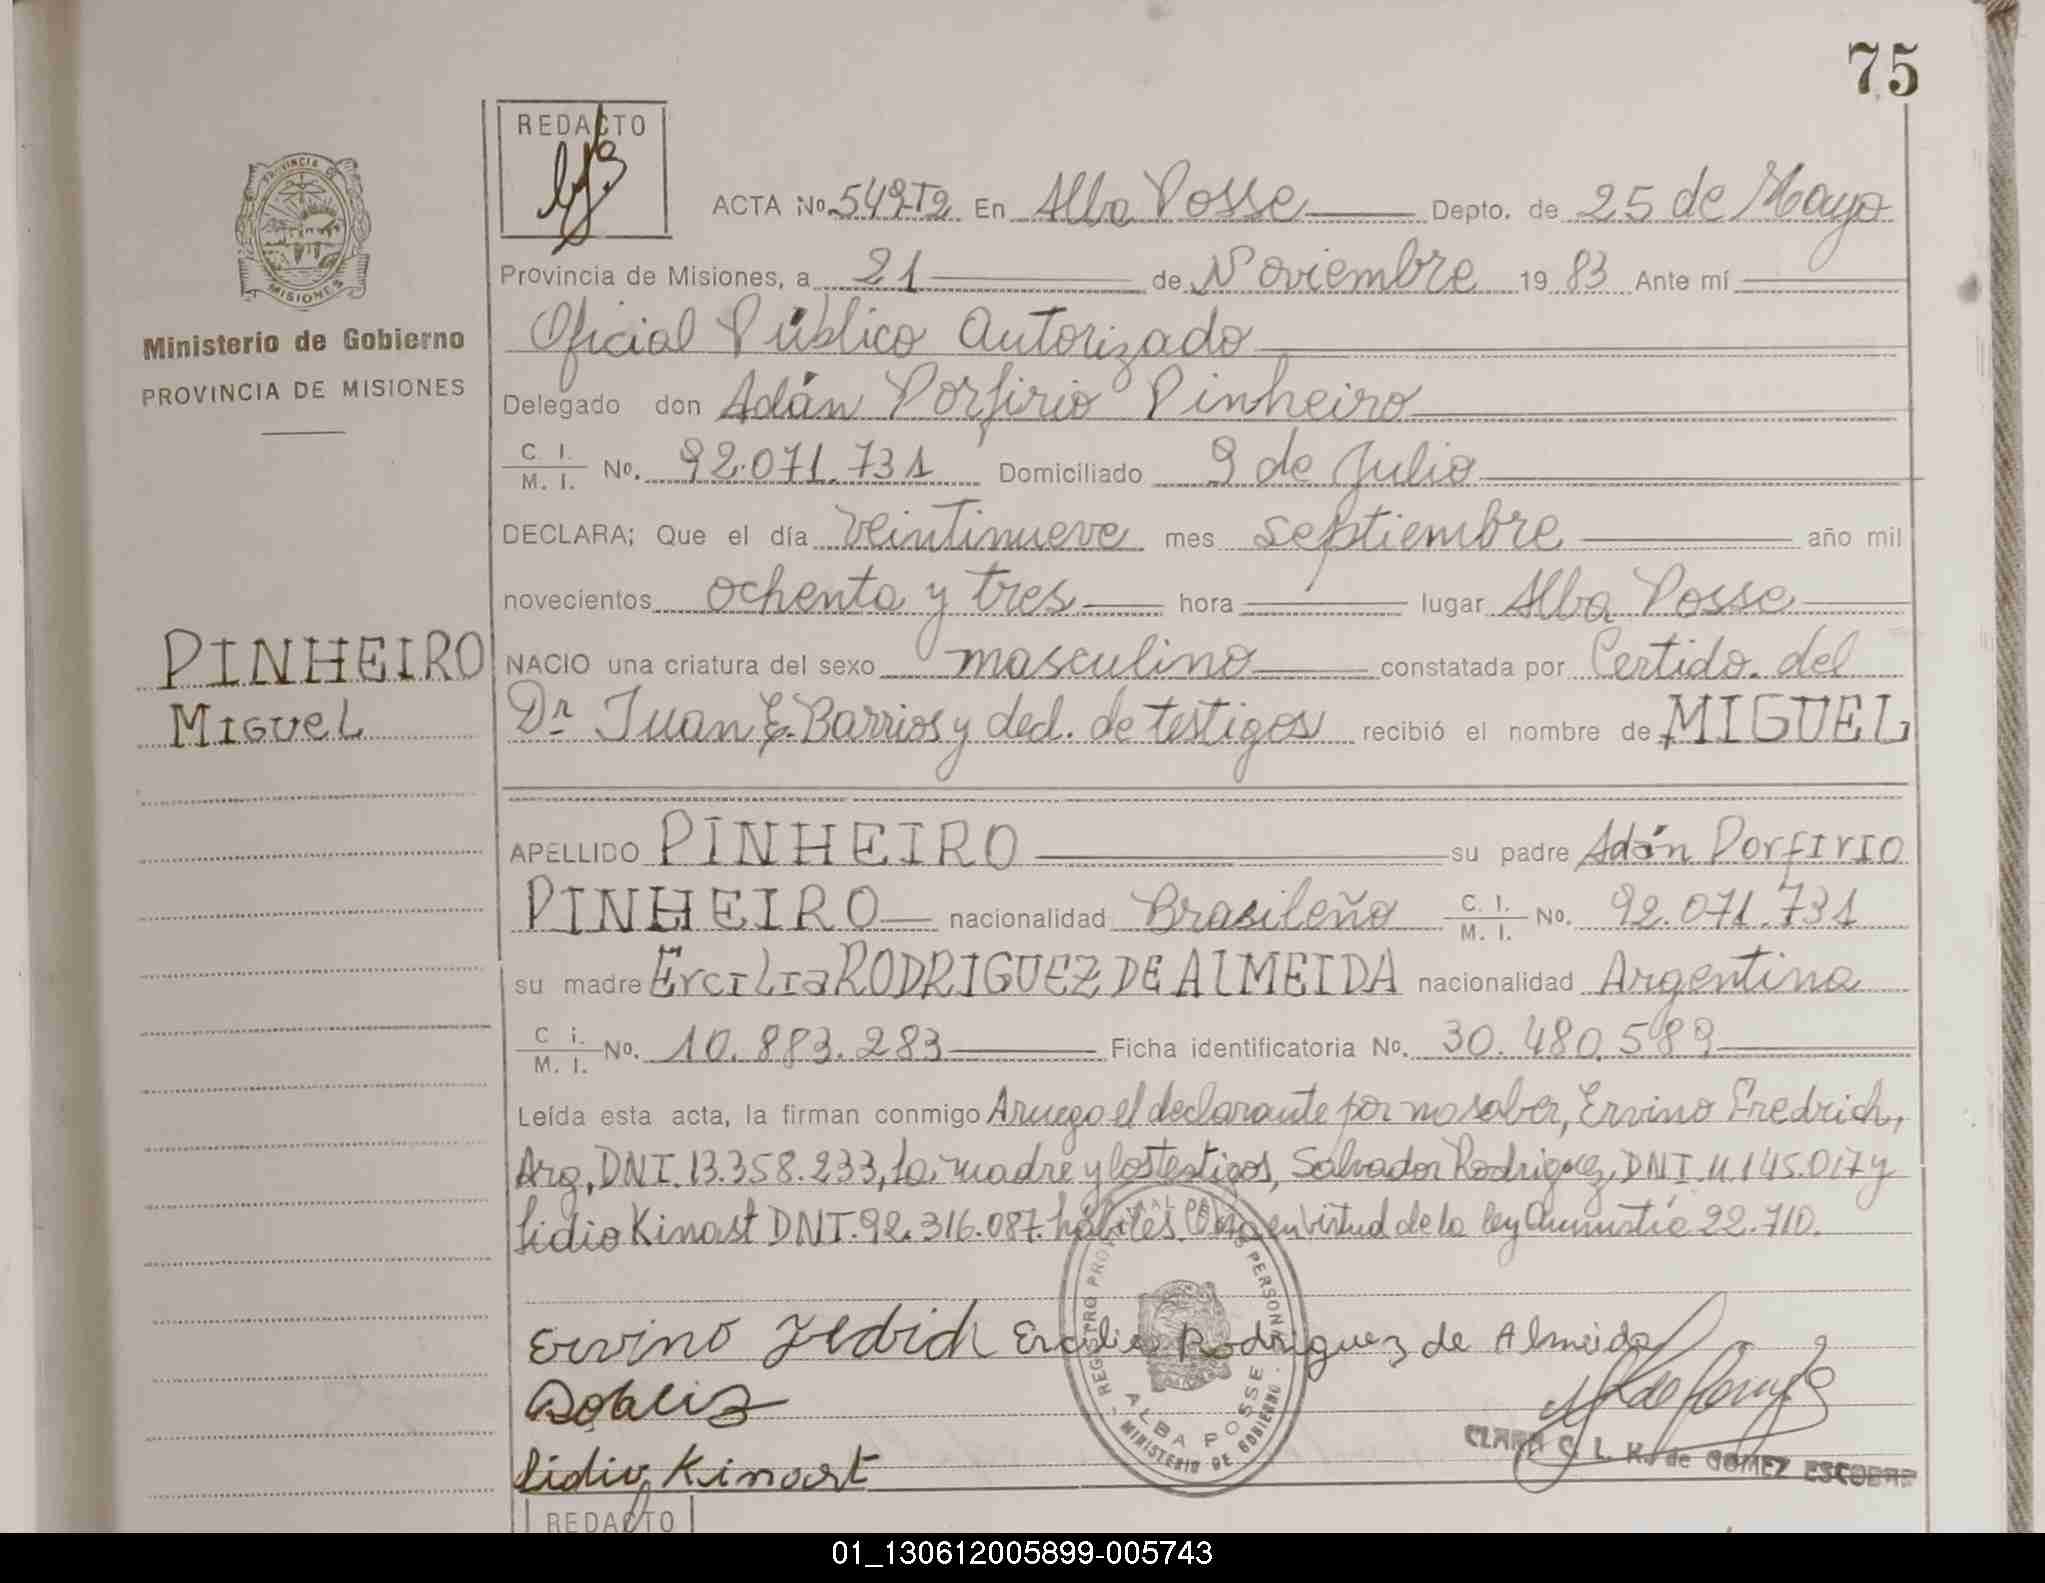 75
REDACTO
PROVINCIA DE
MISIONES
Ministerio de Gobierno
PROVINCIA DE MISIONES
ACTA No. 549T2 En Alba Posse Depto. de 25 de Mayo
Provincia de Misiones, a 21 de Noviembre 1983 Ante mí
Oficial Público Autorizado
Delegado don Adán Porfirio Pinheiro
C. I. M. I. No. 92.071.731 Domiciliado 9 de Julio
DECLARA; Que el día veintinueve mes septiembre año mil
novecientos ochenta y tres hora lugar Alba Posse
PINHEIRO
MIGUEL
NACIO una criatura del sexo masculino constatada por Certido. del
Dr Juan E. Barrios y decl. de testigos recibió el nombre de MIGUEL
APELLIDO PINHEIRO su padre Adán Porfirio
PINHEIRO nacionalidad Brasileño C. I. M. I. No. 92.071.731
su madre Ercilia RODRIGUEZ DE ALMEIDA nacionalidad Argentina
C i. M. I. No. 10.883.283 Ficha identificatoria No. 30.480.589
Leída esta acta, la firman conmigo A ruego el declarante por no saber, Ervino Fredrich,
Arg, DNI. 13.358.233, la madre y los testigos, Salvador Rodriguez, DNI. 11.145.017 y
Lidio Kinast DNI. 92.316.087. hábiles en virtud de la ley 22.710.
Ervino Fedrich Ercilia Rodriguez de Almeida
Lidio Kinast
REGISTRO PROVINCIAL DE LAS PERSONAS
ALBA POSSE
MINISTERIO DE GOBIERNO
CLARA C. L. K. de GOMEZ ESCOBAR
REDACTO
01_130612005899-005743